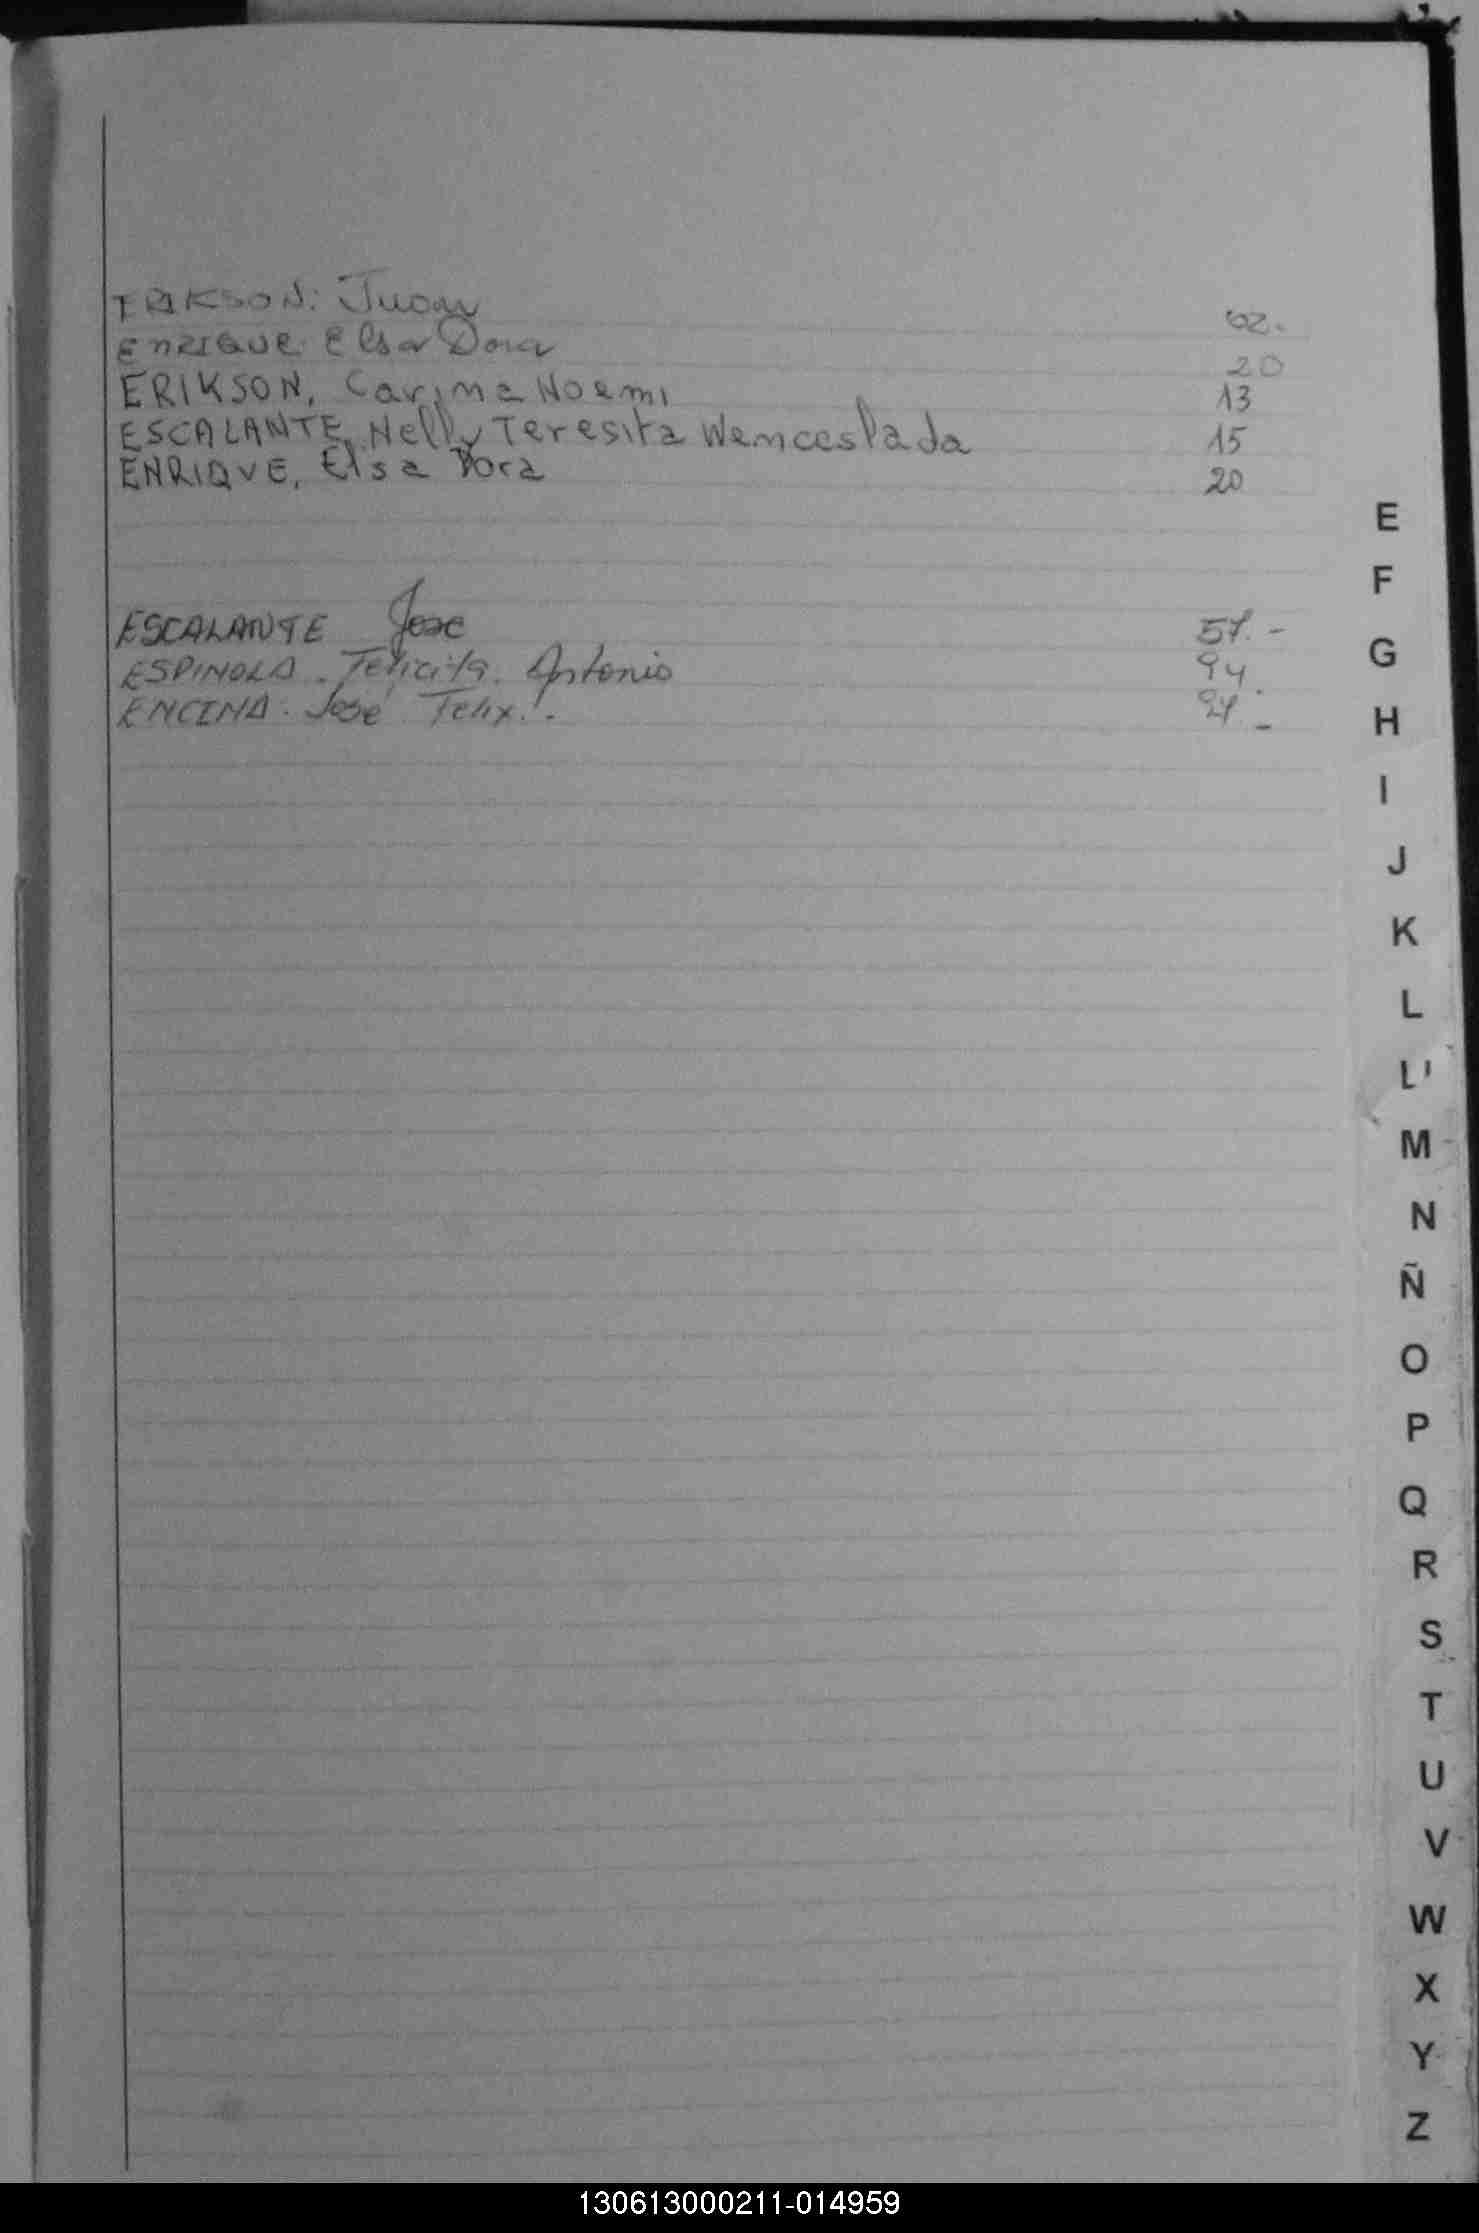 ERIKSON: Juan 02.
ENRIQUE: Elsa Dora 20
ERIKSON, Carina Noemi 13
ESCALANTE, Nelly Teresita Wenceslada 15
ENRIQUE, Elsa Dora 20
ESCALANTE Jose 57.-
ESPINOLA. Felicita. Antonio 94.
ENCINA. José Felix.-
E
F
G
H
I
J
K
L
M
N
Ñ
O
P
Q
R
S
T
U
V
W
X
Y
Z
130613000211-014959